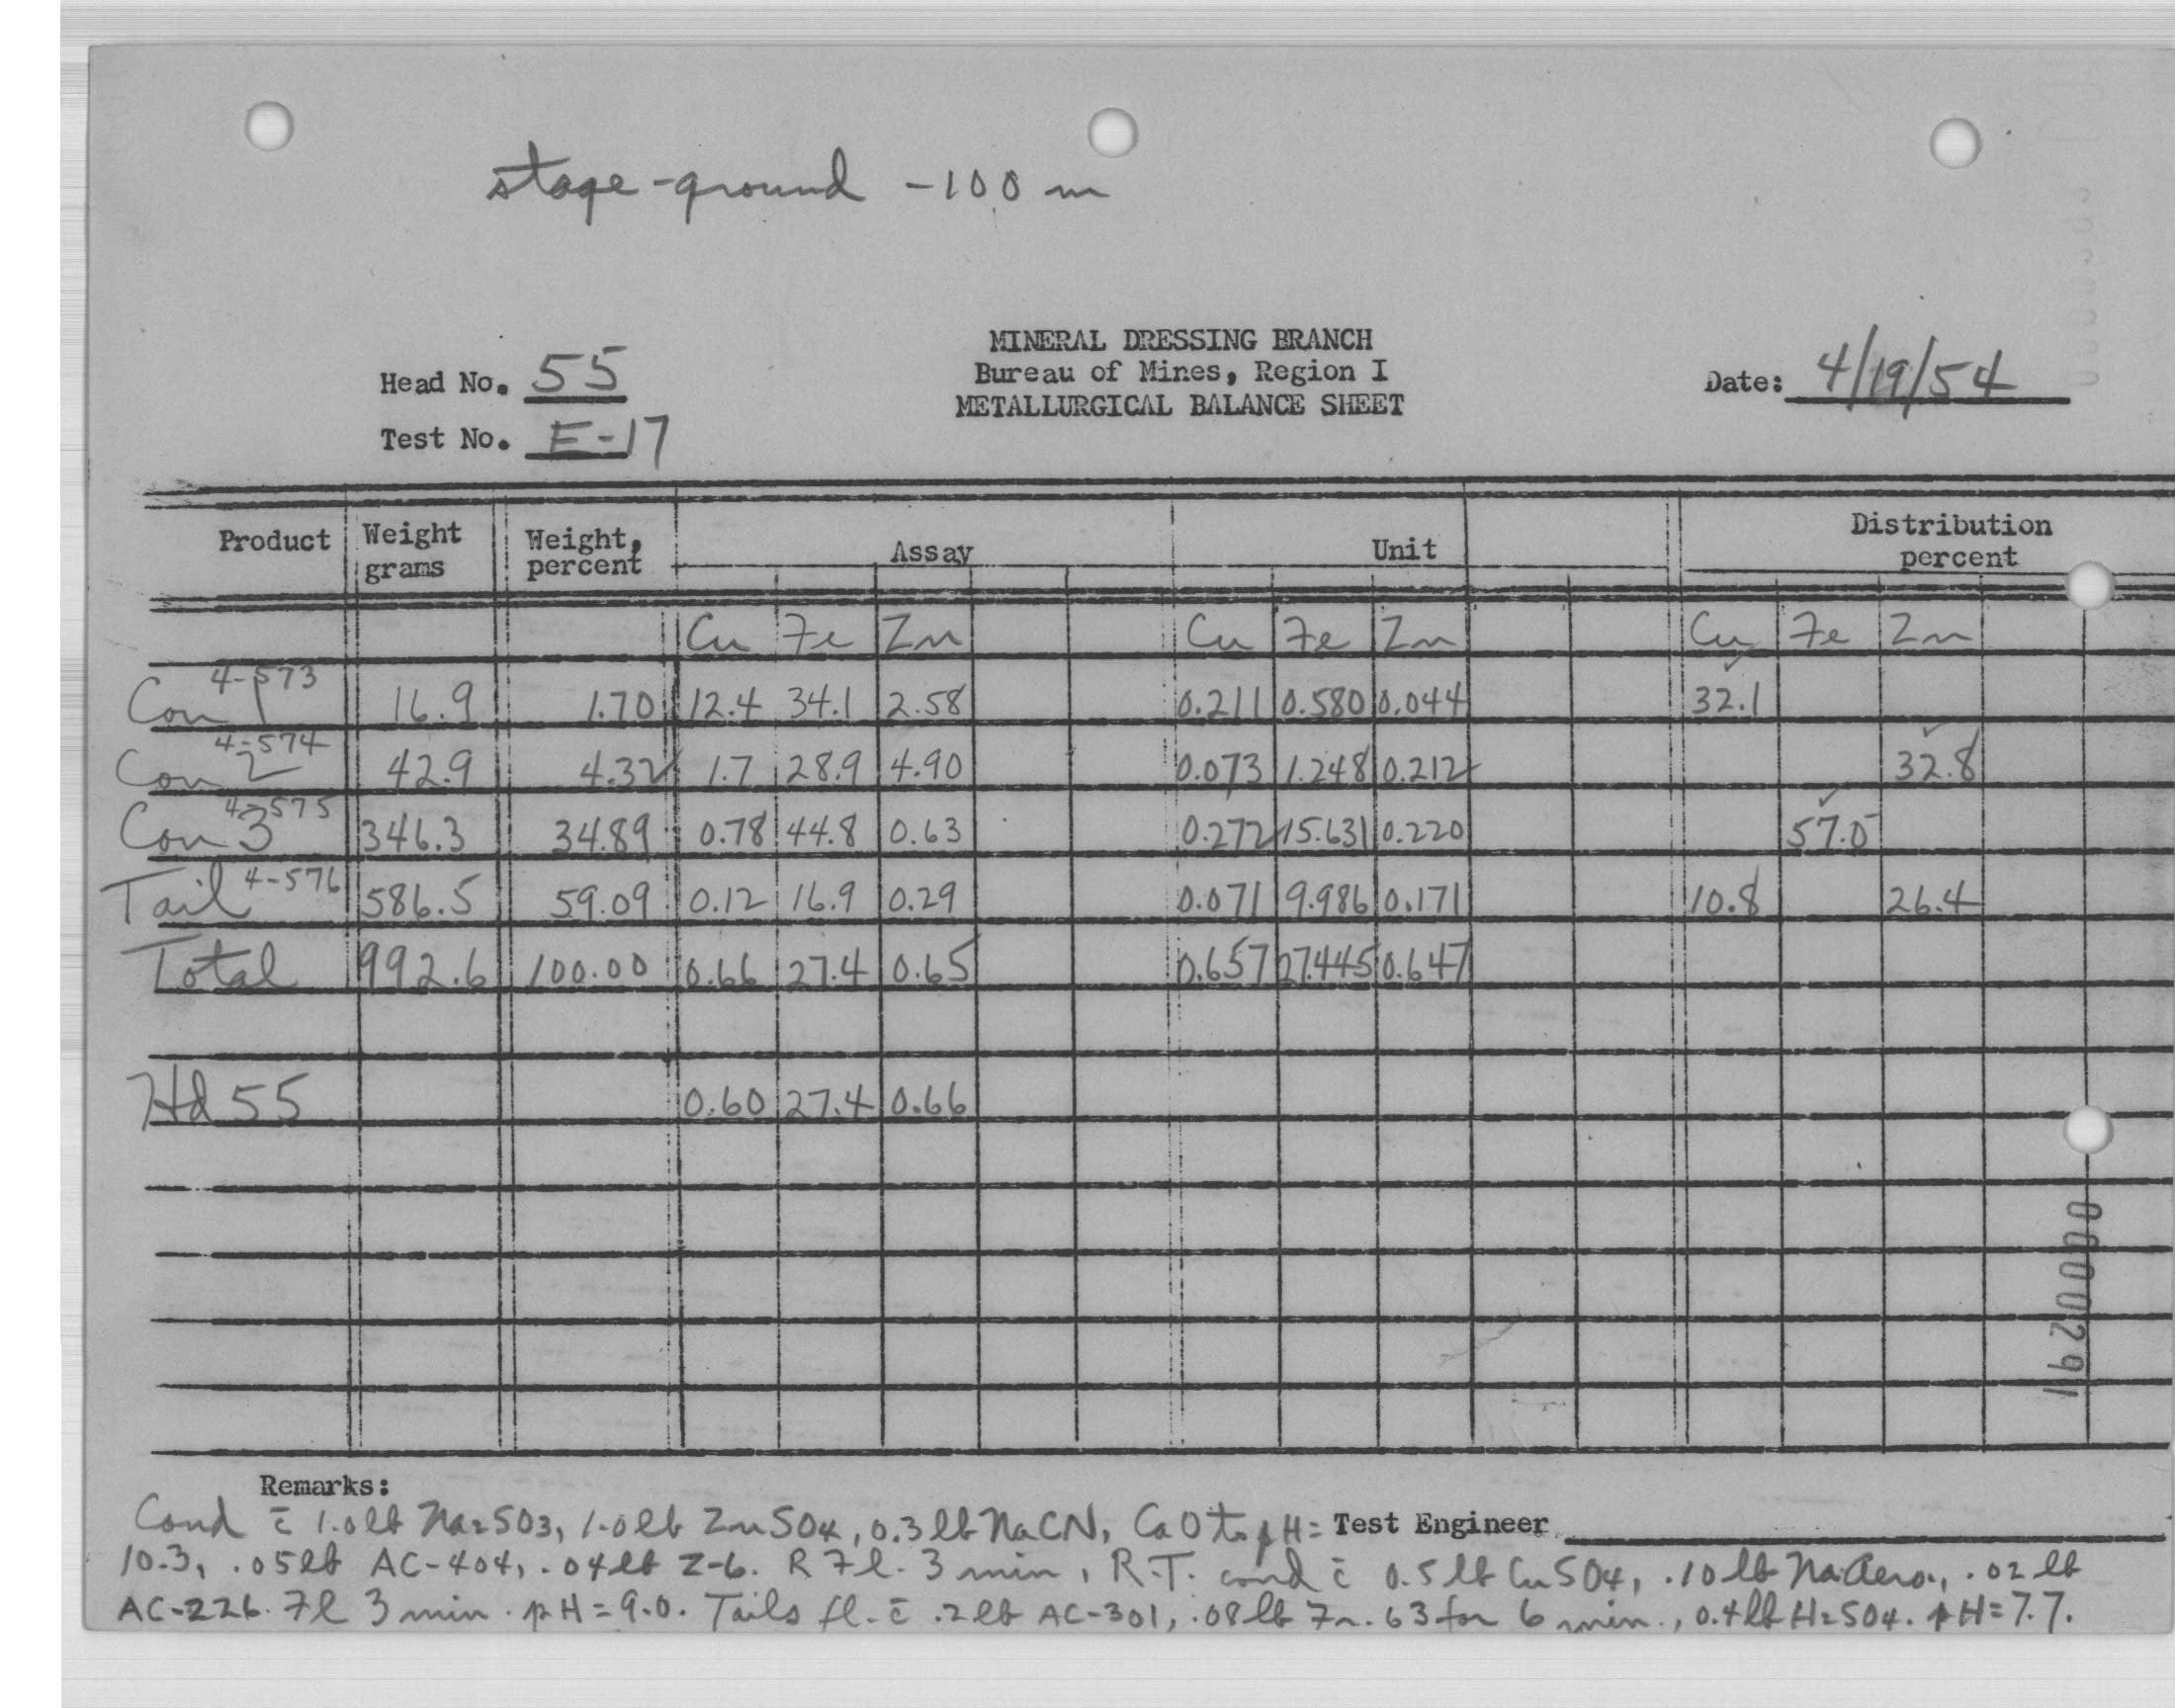 stage-ground -100 m
MINERAL DRESSING BRANCH
Bureau of Mines, Region I
METALLURGICAL BALANCE SHEET
Head No. 55
Test No. E-17
Date: 4/19/54
Product Weight grams Weight, percent Assay Unit Distribution percent
Cu Fe Zn Cu Fe Zn Cu Fe Zn
Con 1 4-573 16.9 1.70 12.4 34.1 2.58 0.211 0.580 0.044 32.1
Con 2 4-574 42.9 4.32 1.7 28.9 4.90 0.073 1.248 0.212 32.8
Con 3 4-575 346.3 34.89 0.78 44.8 0.63 0.272 15.631 0.220 57.0
Tail 4-576 586.5 59.09 0.12 16.9 0.29 0.071 9.986 0.171 10.8 26.4
Total 992.6 100.00 0.66 27.4 0.65 0.657 27.445 0.647
Hd 55 0.60 27.4 0.66
0000291
Remarks:
Cond c̄ 1.0 lb Na2SO3, 1.0 lb ZnSO4, 0.3 lb NaCN, CaO to pH= Test Engineer
10.3, .05 lb AC-404, .04 lb Z-6. R Fl. 3 min, R.T. cond c̄ 0.5 lb CuSO4, .10 lb Na Aero., .02 lb
AC-226. Fl 3 min. pH = 9.0. Tails fl. c̄ .2 lb AC-301, .08 lb Fr. 63 for 6 min., 0.4 lb H2SO4. pH = 7.7.